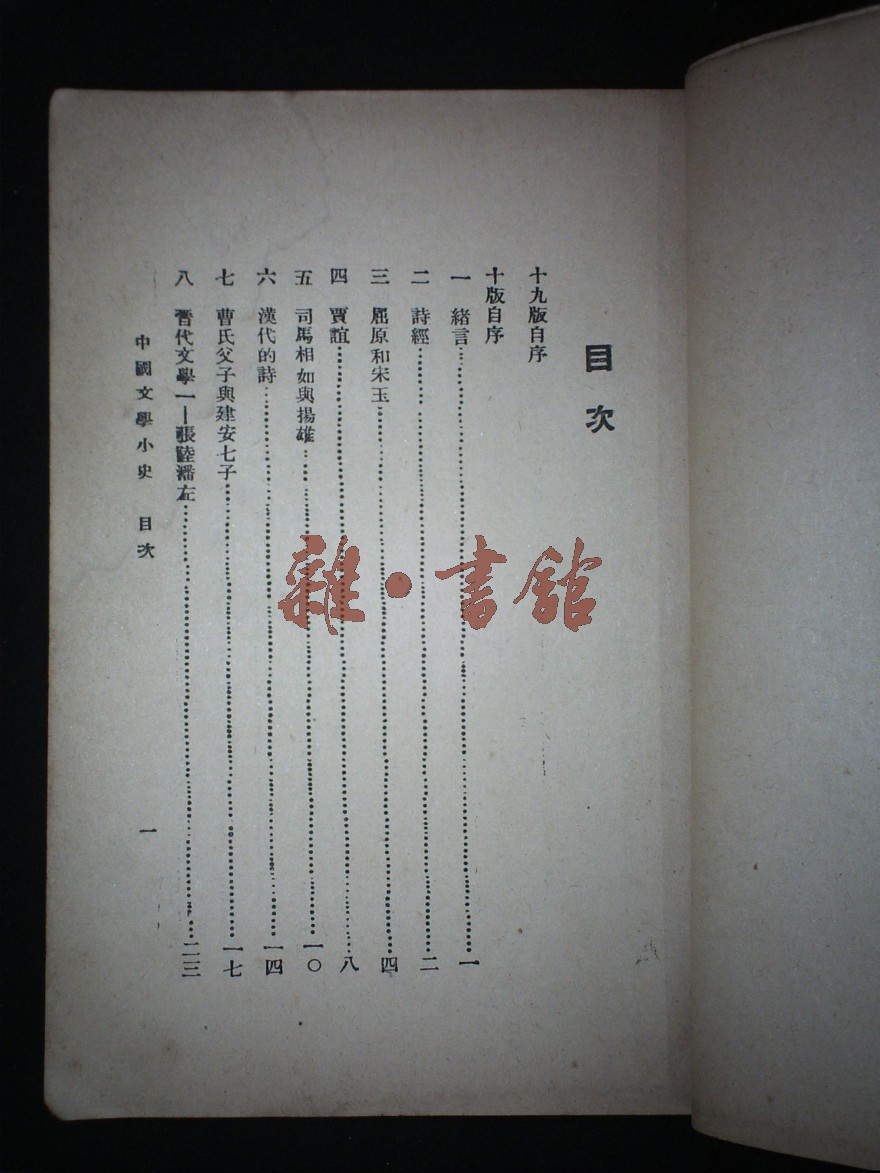 目次
十九版自序
十版自序
一 緒言……一
二 詩經……二
三 屈原和宋玉……四
四 賈誼……八
五 司馬相如與揚雄……一〇
六 漢代的詩……一四
七 曹氏父子與建安七子……一七
八 晉代文學一—張陸潘左……二三
中國文學小史 目次 一
雜·書館